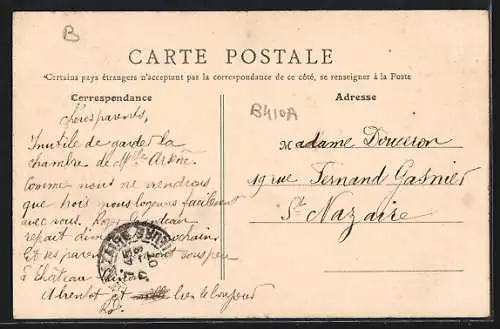 B
CARTE POSTALE
*Certains pays étrangers n'acceptent pas la correspondance de ce côté, se renseigner à la Poste
Correspondance
Adresse
Chers parents,
B410A
Inutile de garder la
chambre de Mlle
Comme nous ne viendrons
que trois nous logeons facilement
avec vous.
repart dimanche prochain
Et ses parents sont
à Château
A bientôt
Madame Douceron
19 rue Fernand Gasnier
St Nazaire